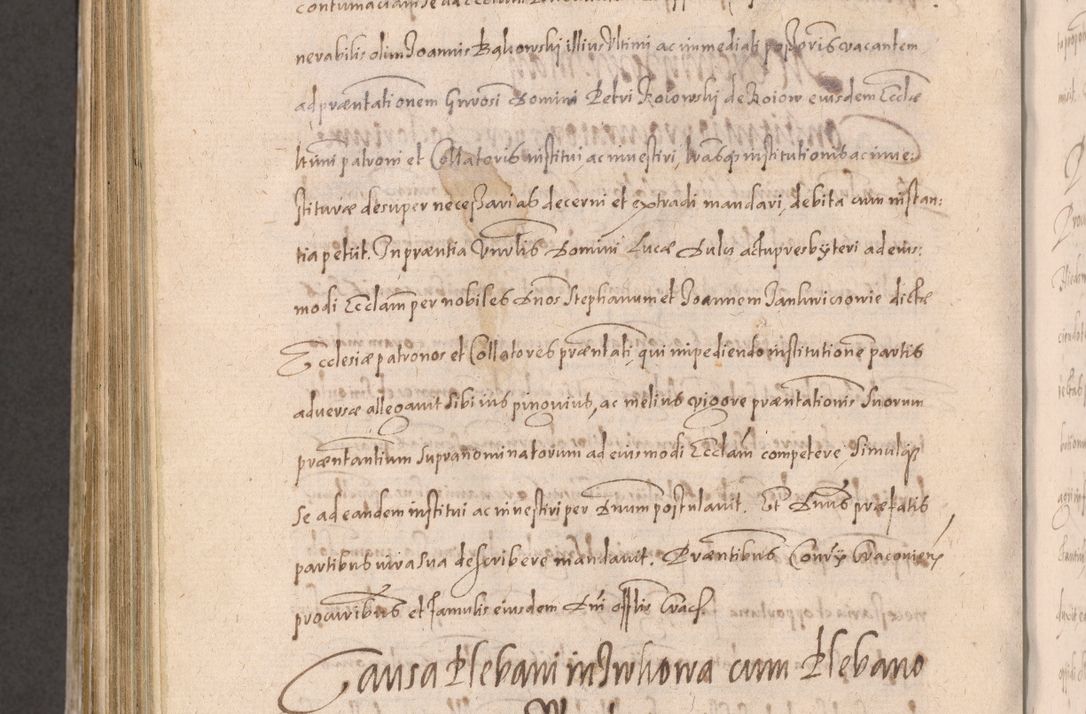 nerabilis olim Joannis Bąkowski illius ultimi ac immediati possoris vacantem
ad præntationem Gnrosi Domini Petri Roiowskj de Roiow eiusdem Ecclæ
ltimi patroni et Collatoris institui ac inuestiri, lrasq institutionis ac inue:
stituræ desuper necessari ab decerni et extradi mandari, debita cum instan:
tia petiit. In præntia Vnrlis Domini Lucæ Dulij actu presbyteri ad eius:
modi Ecclam per nobiles Dnos Stephanum et Joannem Jankwiczowie dictæ
Ecclesiæ patronos et Collatores præntati, qui impediendo institutione partis
adversæ allegavit sibi ius pinguius, ac melius vigore præntationis suorum
præntantium supranominatorum ad eiusmodi Ecclam competere, simulq
se ad eandem institui ac investiri per Dnum postulavit. Et Dnus præfatis
partibus iura sua describere mandavit. Præntibus Consrij Cracovien
procuribus et famulis eiusdem Dni offlis Crac
Causa Plebani in Irzhowa cum Plebano